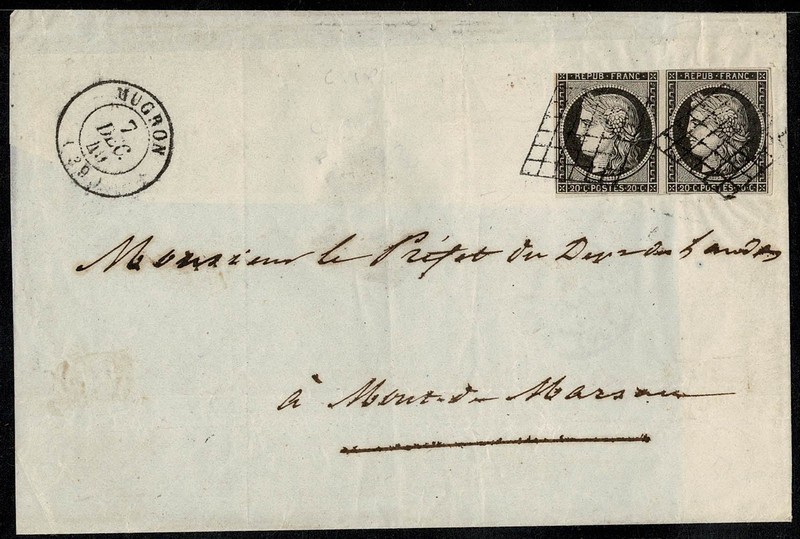 REPUB·FRANC·
REPUB·FRANC·
MUGRON
7
DEC.
49
(39)
20·C·POSTES·20·C
20·C·POSTES·20·C
Monsieur le Préfet du Dep.t des Landes
à Mont-de-Marsan